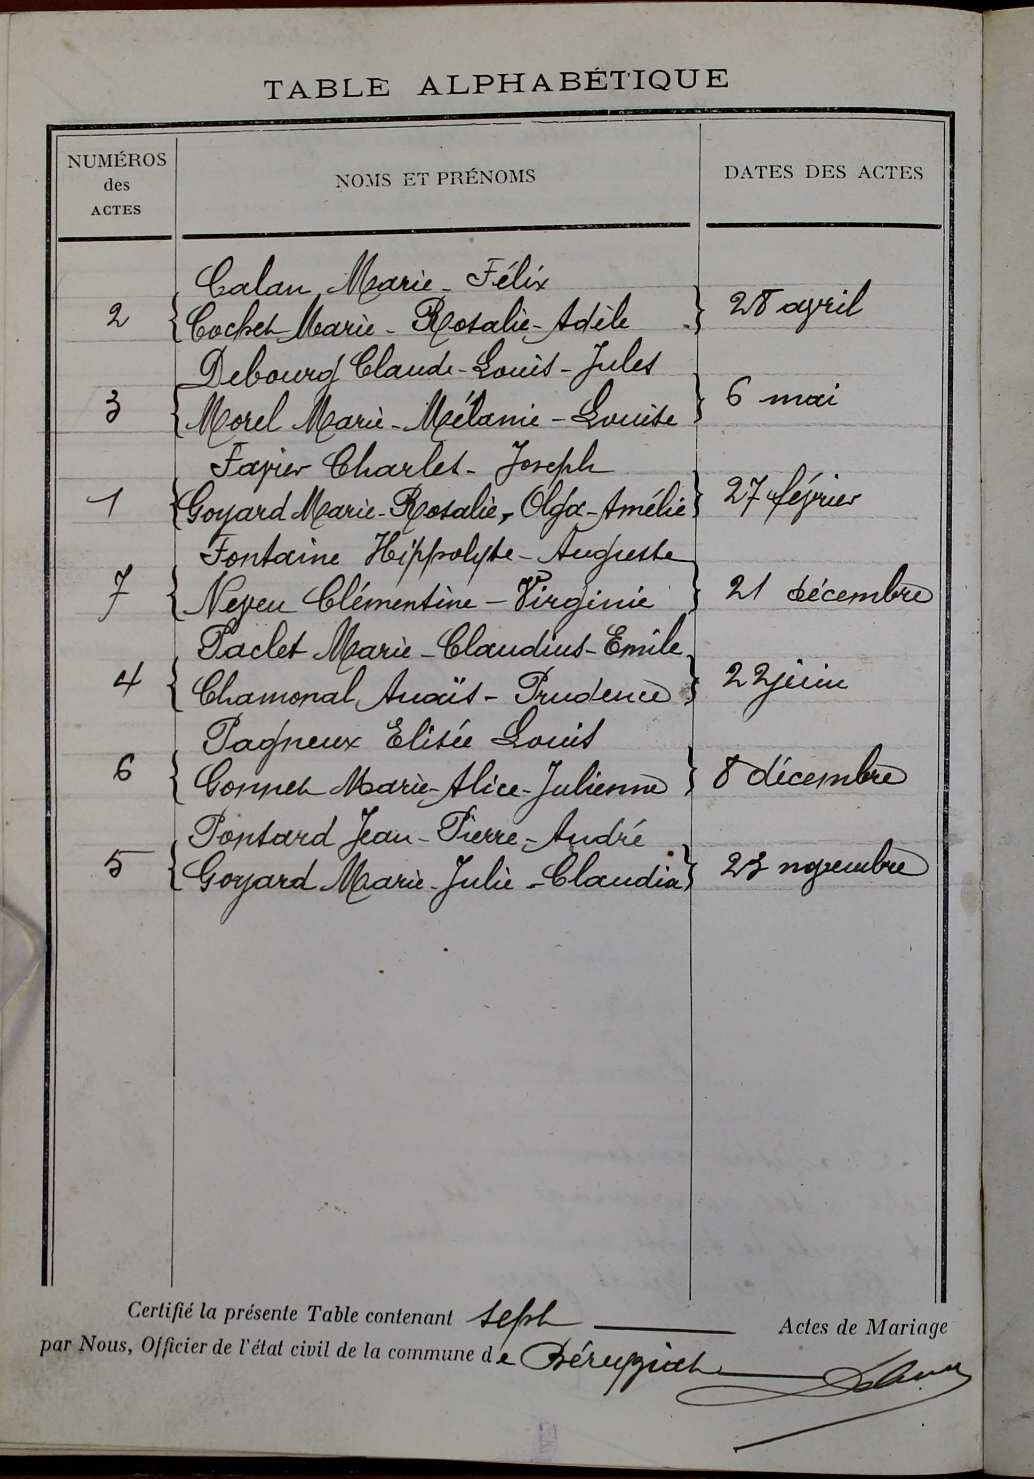 TABLE ALPHABÉTIQUE
NUMÉROS des ACTES
NOMS ET PRÉNOMS
DATES DES ACTES
Calan Marie-Félix
2 { Cochet Marie-Rosalie-Adèle } 28 avril
Debourg Claude-Louis-Jules
3 { Morel Marie-Mélanie-Louise } 6 mai
Favier Charles-Joseph
1 { Goyard Marie-Rosalie, Olga-Amélie } 27 février
Fontaine Hippolyte-Auguste
7 { Neveu Clémentine-Virginie } 21 décembre
Paclet Marie-Claudius-Emile
4 { Chamonal Anaïs-Prudence } 22 juin
Pagneux Elisée Louis
6 { Gonnet Marie-Alice-Julienne } 8 décembre
Pontard Jean-Pierre-André
5 { Goyard Marie-Julie-Claudia } 23 novembre
Certifié la présente Table contenant sept Actes de Mariage
par Nous, Officier de l'état civil de la commune de Béruziat